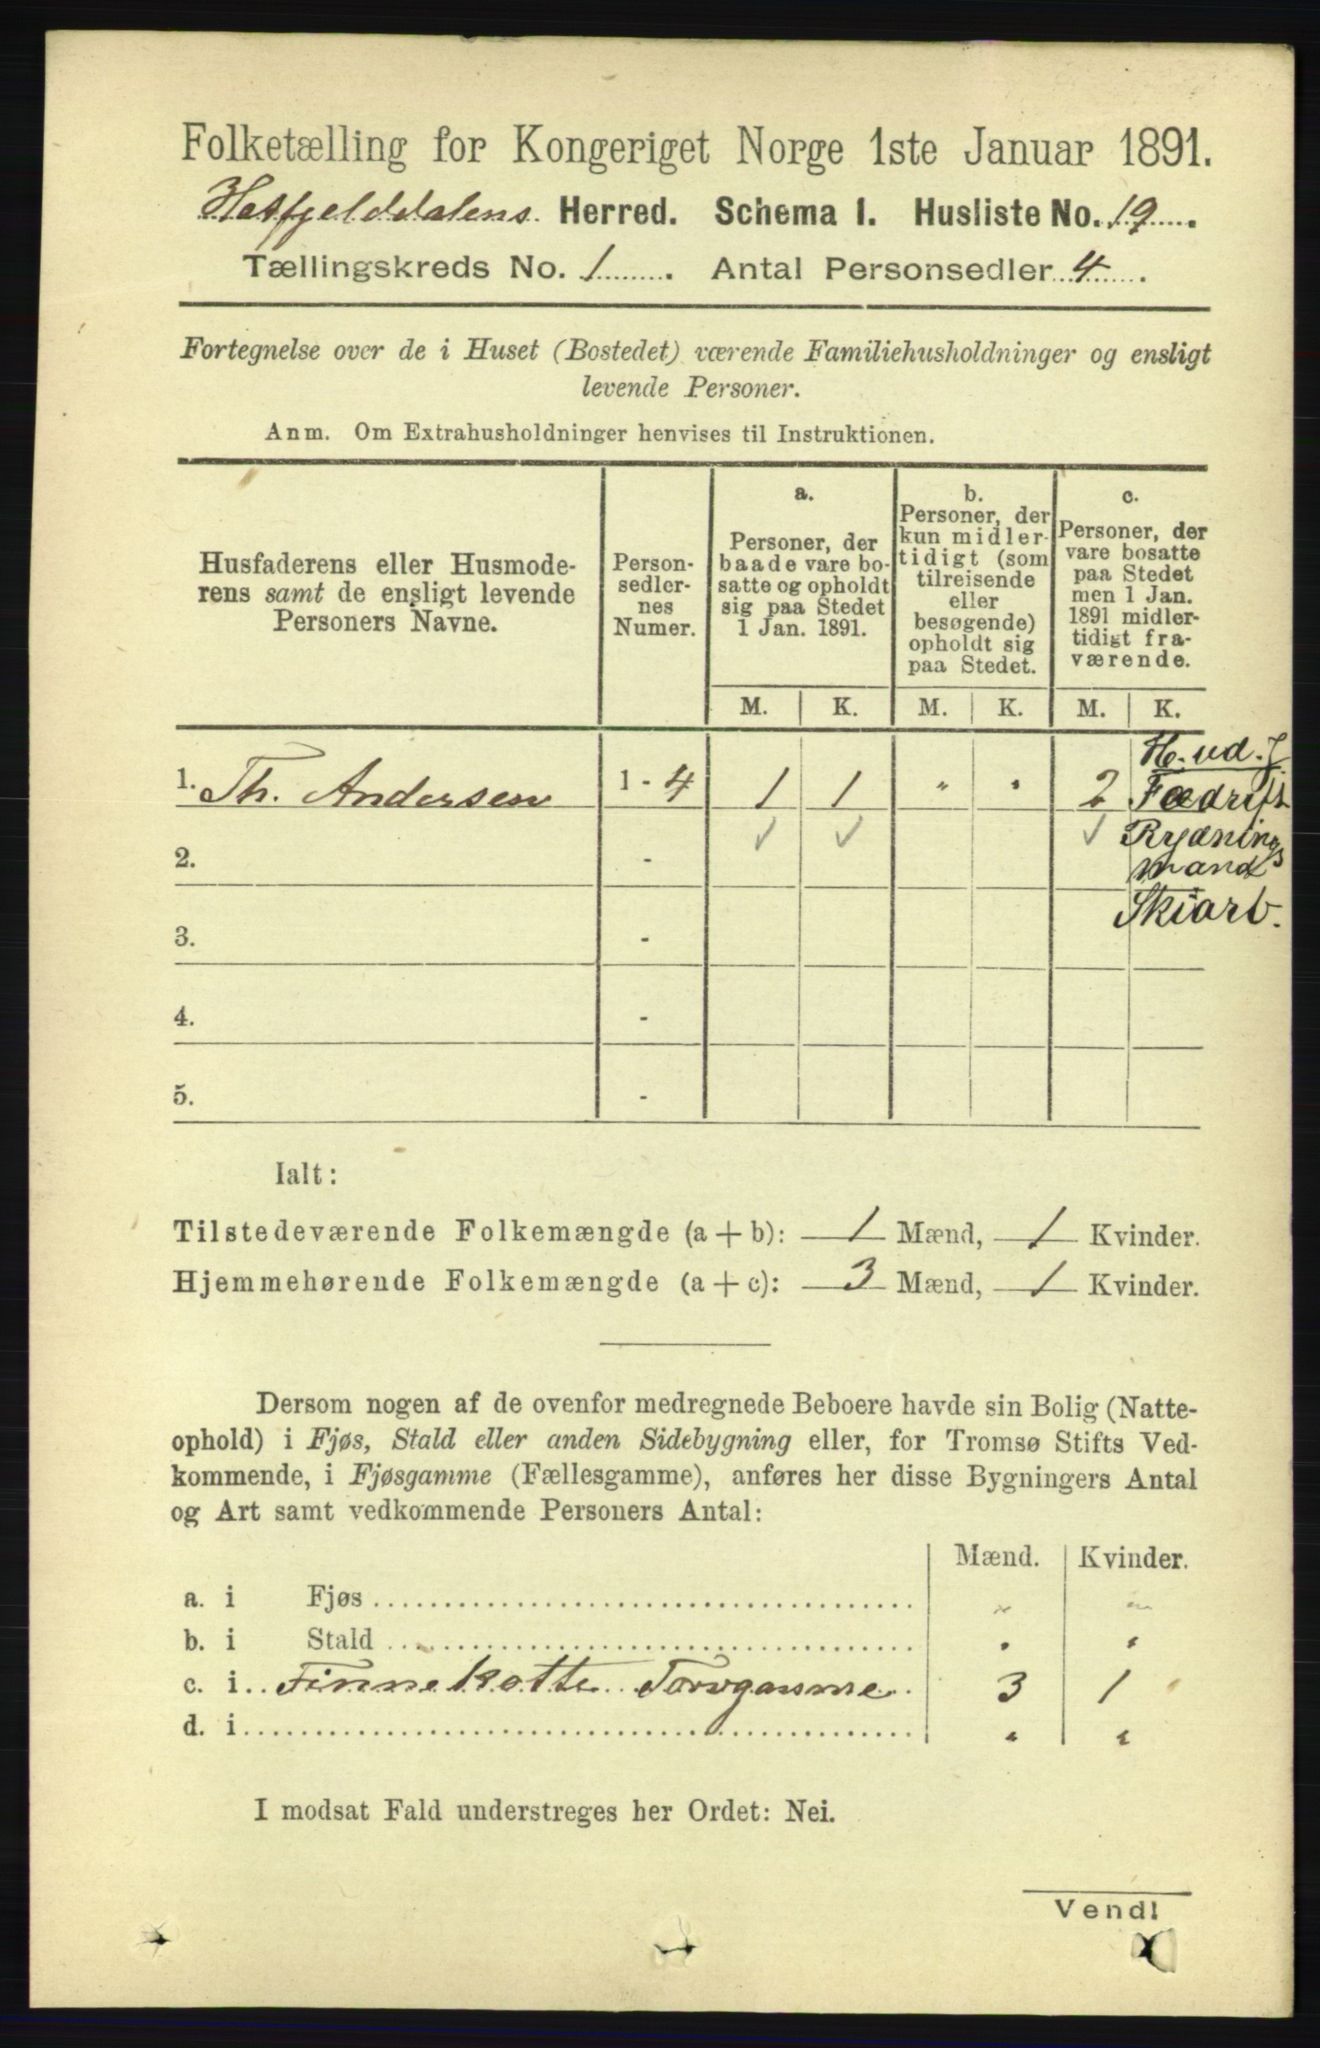 Folketælling for Kongeriget Norge 1ste Januar 1891.
Hatfjelddalens Herred. Schema I. Husliste No. 19.
Tællingskreds No. 1. Antal Personsedler 4.
Fortegnelse over de i Huset (Bostedet) værende Familiehusholdninger og ensligt
levende Personer.
Anm. Om Extrahusholdninger henvises til Instruktionen.
Husfaderens eller Husmode-
rens samt de ensligt levende
Personers Navne.
Person-
sedler-
nes
Numer.
a.
Personer, der
baade vare bo-
satte og opholdt
sig paa Stedet
1 Jan. 1891.
b.
Personer, der
kun midler-
tidigt (som
tilreisende
eller
besøgende)
opholdt sig
paa Stedet.
c.
Personer, der
vare bosatte
paa Stedet
men 1 Jan.
1891 midler-
tidigt fra-
værende.
M. K. M. K. M. K.
H. ud. J
1. Th. Andersen 1 - 4 1 1 " " 2 Fædrift
✓ ✓ ✓ Rydnings
2. - mand
Skiarb.
3. -
4. -
5. -
Ialt:
Tilstedeværende Folkemængde (a + b): 1 Mænd, 1 Kvinder.
Hjemmehørende Folkemængde (a + c): 3 Mænd, 1 Kvinder.
Dersom nogen af de ovenfor medregnede Beboere havde sin Bolig (Natte-
ophold) i Fjøs, Stald eller anden Sidebygning eller, for Tromsø Stifts Ved-
kommende, i Fjøsgamme (Fællesgamme), anføres her disse Bygningers Antal
og Art samt vedkommende Personers Antal:
Mænd. Kvinder.
a. i Fjøs " "
b. i Stald " "
c. i Finnekotte Torvgamme 3 1
d. i " "
I modsat Fald understreges her Ordet: Nei.
Vend!